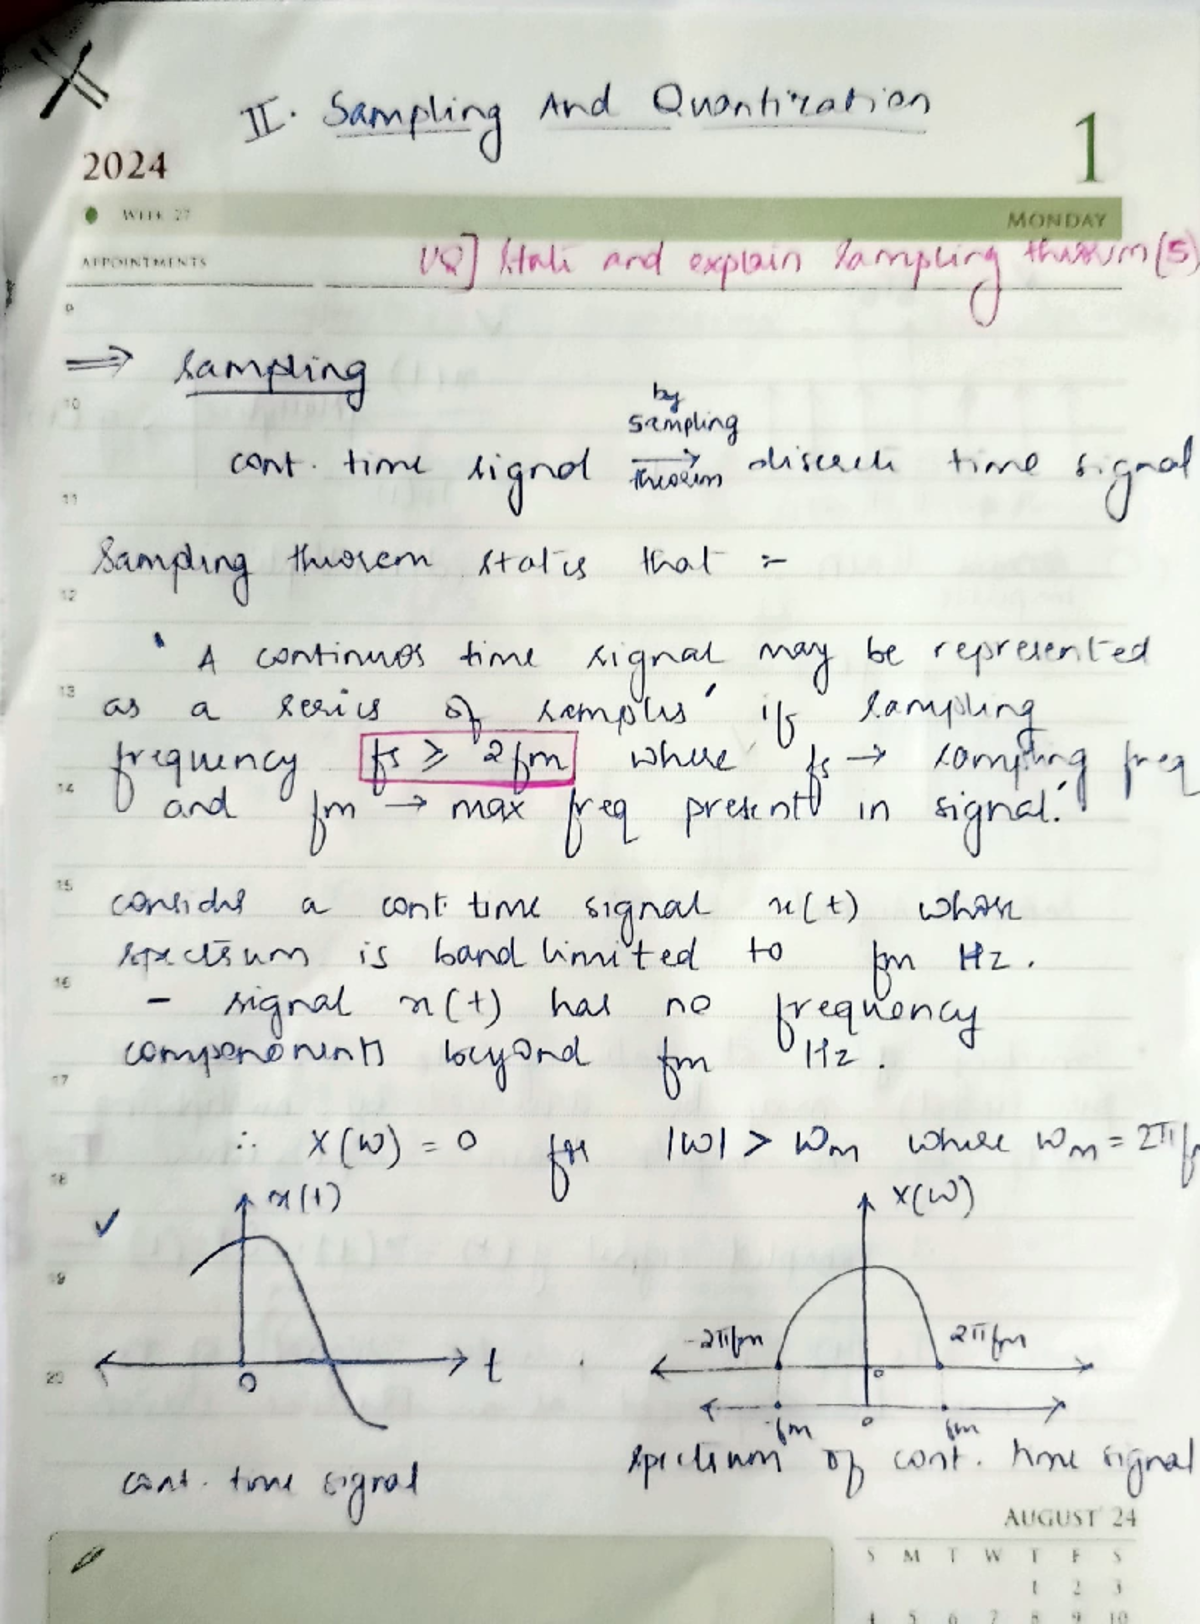 II. Sampling And Quantization
2024
1
WEEK 27
MONDAY
APPOINTMENTS
UQ] State and explain Sampling theorem (5)
9
⇒ Sampling
10
by
sampling
cont. time signal → discrete time signal
theorem
11
Sampling theorem states that :-
12
' A continuos time signal may be represented
13
as a series of samples' if sampling
frequency fs ≥ 2fm where fs → sampling freq
14
and fm → max freq present in signal.'
15
consider a cont. time signal x(t) whose
spectrum is band limited to fm Hz.
16
- signal x(t) has no frequency
componenents beyond fm Hz.
17
∴ X(ω) = 0 for |ω| > ωm where ωm = 2πf
18
x(t)
X(ω)
19
-2πfm
2πfm
20
t
0
0
-fm
0
fm
cont. time signal
spectrum of cont. time signal
AUGUST 24
S M T W T F S
1 2 3
4 5 6 7 8 9 10